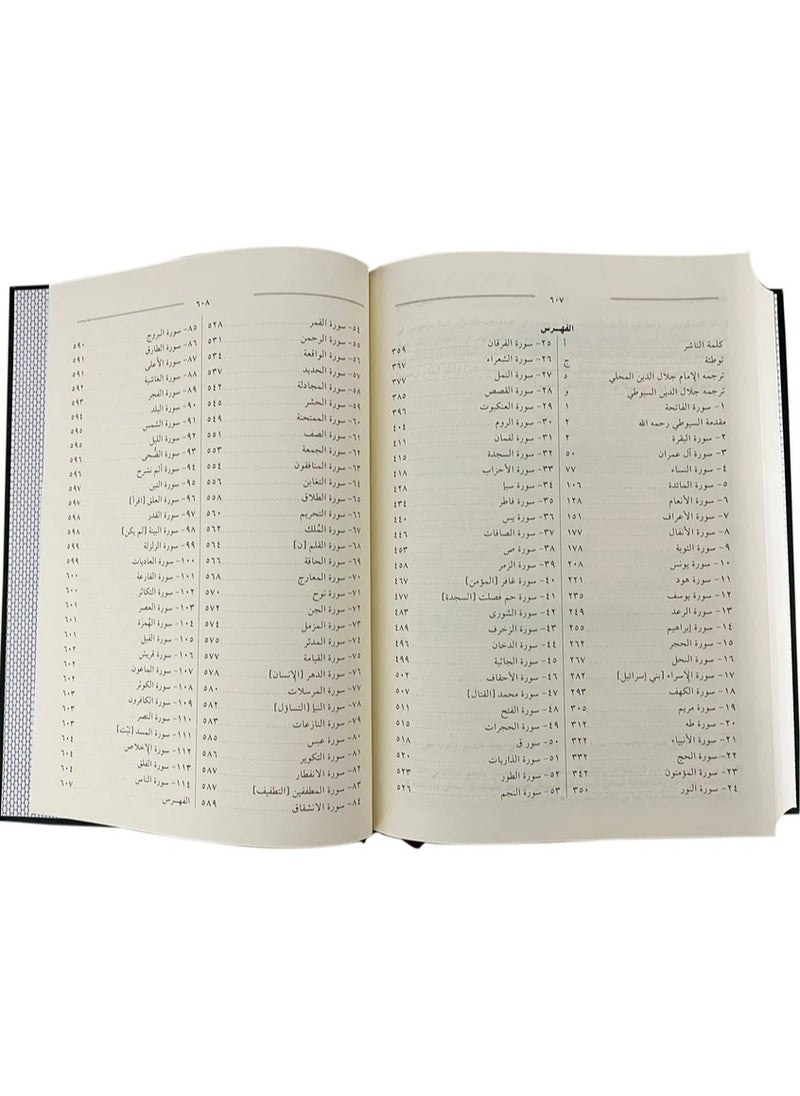 ٦٠٧
الفهرس
كلمة الناشر أ
توطئة ج
ترجمه الإمام جلال الدين المحلي د
ترجمه جلال الدين السيوطي و
١- سورة الفاتحة ١
مقدمة السيوطي رحمه الله ٢
٢- سورة البقرة ٢
٣- سورة آل عمران ٥٠
٤- سورة النساء ٧٧
٥- سورة المائدة ١٠٦
٦- سورة الأنعام ١٢٨
٧- سورة الأعراف ١٥١
٨- سورة الأنفال ١٧٧
٩- سورة التوبة ١٨٧
١٠- سورة يونس ٢٠٨
١١- سورة هود ٢٢١
١٢- سورة يوسف ٢٣٥
١٣- سورة الرعد ٢٤٩
١٤- سورة إبراهيم ٢٥٥
١٥- سورة الحجر ٢٦٢
١٦- سورة النحل ٢٦٧
١٧- سورة الإسراء [بني إسرائيل] ٢٨٢
١٨- سورة الكهف ٢٩٣
١٩- سورة مريم ٣٠٥
٢٠- سورة طه ٣١٢
٢١- سورة الأنبياء ٣٢٢
٢٢- سورة الحج ٣٣٢
٢٣- سورة المؤمنون ٣٤٢
٢٤- سورة النور ٣٥٠
٢٥- سورة الفرقان ٣٥٩
٢٦- سورة الشعراء ٣٦٧
٢٧- سورة النمل ٣٧٧
٢٨- سورة القصص ٣٨٥
٢٩- سورة العنكبوت ٣٩٦
٣٠- سورة الروم ٤٠٤
٣١- سورة لقمان ٤١١
٣٢- سورة السجدة ٤١٥
٣٣- سورة الأحزاب ٤١٨
٣٤- سورة سبإ ٤٢٨
٣٥- سورة فاطر ٤٣٤
٣٦- سورة يس ٤٤٠
٣٧- سورة الصافات ٤٤٦
٣٨- سورة ص ٤٥٣
٣٩- سورة الزمر ٤٥٨
٤٠- سورة غافر [المؤمن] ٤٦٧
٤١- سورة حم فصلت [السجدة] ٤٧٧
٤٢- سورة الشورى ٤٨٣
٤٣- سورة الزخرف ٤٨٩
٤٤- سورة الدخان ٤٩٦
٤٥- سورة الجاثية ٤٩٩
٤٦- سورة الأحقاف ٥٠٢
٤٧- سورة محمد [القتال] ٥٠٧
٤٨- سورة الفتح ٥١١
٤٩- سورة الحجرات ٥١٥
٥٠- سورة ق ٥١٨
٥١- سورة الذاريات ٥٢٠
٥٢- سورة الطور ٥٢٣
٥٣- سورة النجم ٥٢٦
٦٠٨
٥٤- سورة القمر ٥٢٨
٥٥- سورة الرحمن ٥٣١
٥٦- سورة الواقعة ٥٣٤
٥٧- سورة الحديد ٥٣٧
٥٨- سورة المجادلة ٥٤٢
٥٩- سورة الحشر ٥٤٥
٦٠- سورة الممتحنة ٥٤٩
٦١- سورة الصف ٥٥١
٦٢- سورة الجمعة ٥٥٣
٦٣- سورة المنافقون ٥٥٤
٦٤- سورة التغابن ٥٥٦
٦٥- سورة الطلاق ٥٥٨
٦٦- سورة التحريم ٥٦٠
٦٧- سورة المُلك ٥٦٢
٦٨- سورة القلم [ن] ٥٦٤
٦٩- سورة الحاقة ٥٦٦
٧٠- سورة المعارج ٥٦٨
٧١- سورة نوح ٥٧٠
٧٢- سورة الجن ٥٧٢
٧٣- سورة المزمل ٥٧٤
٧٤- سورة المدثر ٥٧٥
٧٥- سورة القيامة ٥٧٧
٧٦- سورة الدهر [الإنسان] ٥٧٨
٧٧- سورة المرسلات ٥٨٠
٧٨- سورة النبإ [التساؤل] ٥٨٢
٧٩- سورة النازعات ٥٨٣
٨٠- سورة عبس ٥٨٥
٨١- سورة التكوير ٥٨٦
٨٢- سورة الانفطار ٥٨٧
٨٣- سورة المطففين [التطفيف] ٥٨٧
٨٤- سورة الانشقاق ٥٨٩
٨٥- سورة البروج ٥٩٠
٨٦- سورة الطارق ٥٩١
٨٧- سورة الأعلى ٥٩١
٨٨- سورة الغاشية ٥٩٢
٨٩- سورة الفجر ٥٩٣
٩٠- سورة البلد ٥٩٤
٩١- سورة الشمس ٥٩٥
٩٢- سورة الليل ٥٩٥
٩٣- سورة الضُّحى ٥٩٦
٩٤- سورة ألم نشرح ٥٩٦
٩٥- سورة التين ٥٩٧
٩٦- سورة العلق [اقرأ] ٥٩٧
٩٧- سورة القدر ٥٩٨
٩٨- سورة البينة [لم يكن] ٥٩٨
٩٩- سورة الزلزلة ٥٩٩
١٠٠- سورة العاديات ٥٩٩
١٠١- سورة القارعة ٦٠٠
١٠٢- سورة التكاثر ٦٠٠
١٠٣- سورة العصر ٦٠١
١٠٤- سورة الهُمَزة ٦٠١
١٠٥- سورة الفيل ٦٠١
١٠٦- سورة قريش ٦٠٢
١٠٧- سورة الماعون ٦٠٢
١٠٨- سورة الكوثر ٦٠٢
١٠٩- سورة الكافرون ٦٠٣
١١٠- سورة النصر ٦٠٣
١١١- سورة المسد [تبّت] ٦٠٣
١١٢- سورة الإخلاص ٦٠٤
١١٣- سورة الفلق ٦٠٤
١١٤- سورة الناس ٦٠٤
الفهـرس ٦٠٧